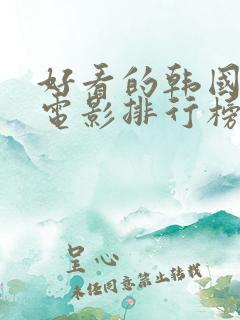 好看的韩国
电影排行榜
呈心
未经同意禁止转载